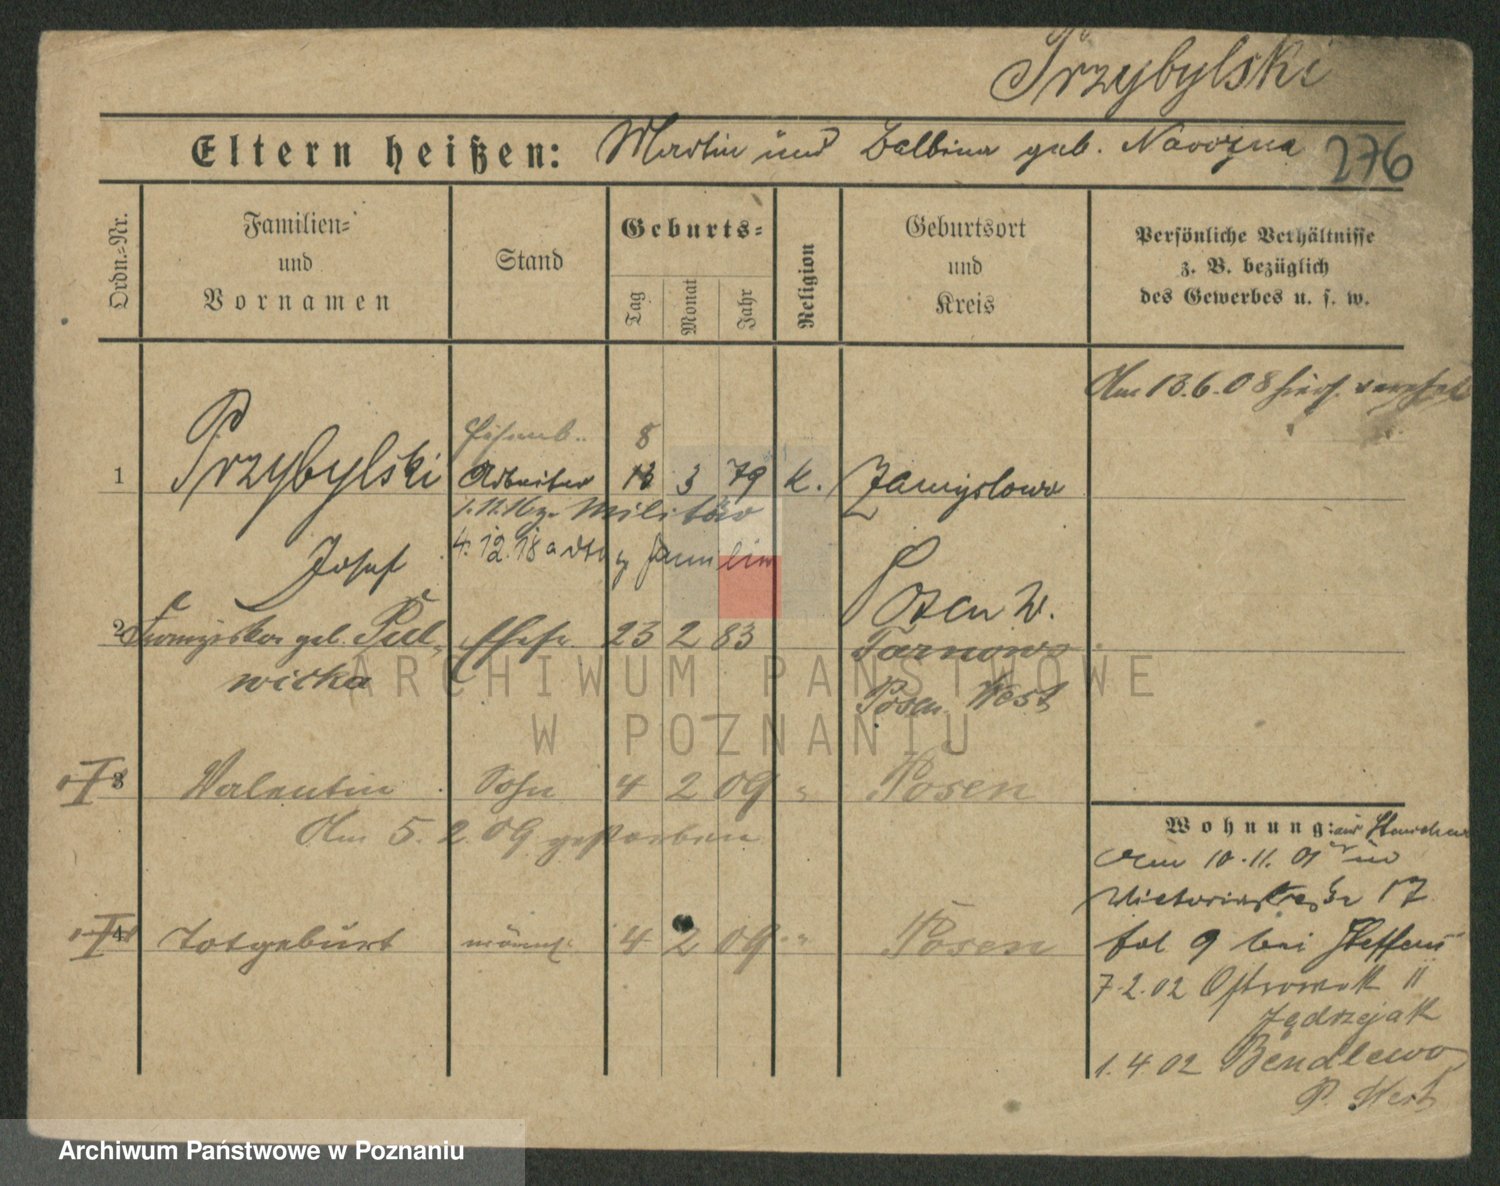 Przybylski
Eltern heißen: Martin und Balbina geb. 276
Ordn.-Nr.
Familien-
und
Vornamen
Stand
Geburts-
Tag
Monat
Jahr
Religion
Geburtsort
und
Kreis
Persönliche Verhältnisse
z. B. bezüglich
des Gewerbes u. s. w.
Am 13.6.08
8
1 Przybylski Arbeiter 18 3 79 k. Zamyslowo
Militär
Josef 4.12.18 Familie
Posen W.
2 Franziska geb. Pul- Ehefr. 23 2 83 Tarnowo
wicka
Posen West
3 Valentin Sohn 4 2 09 " Posen
Am 5.2.09 gestorben
Wohnung: aus
Am 10.11.01 in
Victoriastraße 17
4 Totgeburt männl. 4 2 09 " Posen
bei Steffens
7.2.02 Ostrowek 11
Jędrzejak
1.4.02 Bendlewo
P. West
ARCHIWUM PAŃSTWOWE
W POZNANIU
Archiwum Państwowe w Poznaniu